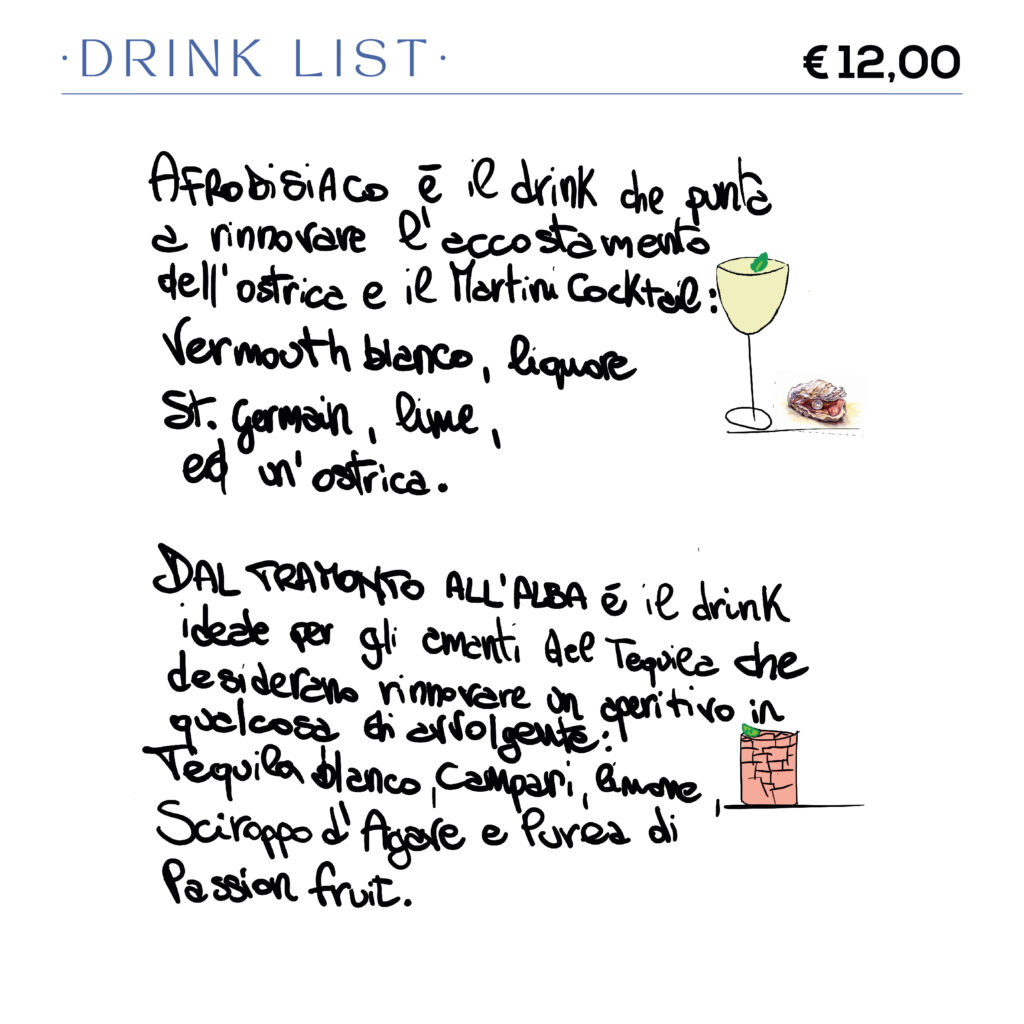 ·DRINK LIST·
€ 12,00
AFRODISIACO é il drink che punta
a rinnovare l'accostamento
dell'ostrica e il Martini Cocktail:
Vermouth blanco, liquore
St. Germain, lime,
ed un'ostrica.
DAL TRAMONTO ALL'ALBA é il drink
ideale per gli amanti del Tequila che
desiderano rinnovare un aperitivo in
qualcosa di avvolgente:
Tequila blanco, Campari, limone,
Sciroppo d'Agave e Purea di
Passion fruit.